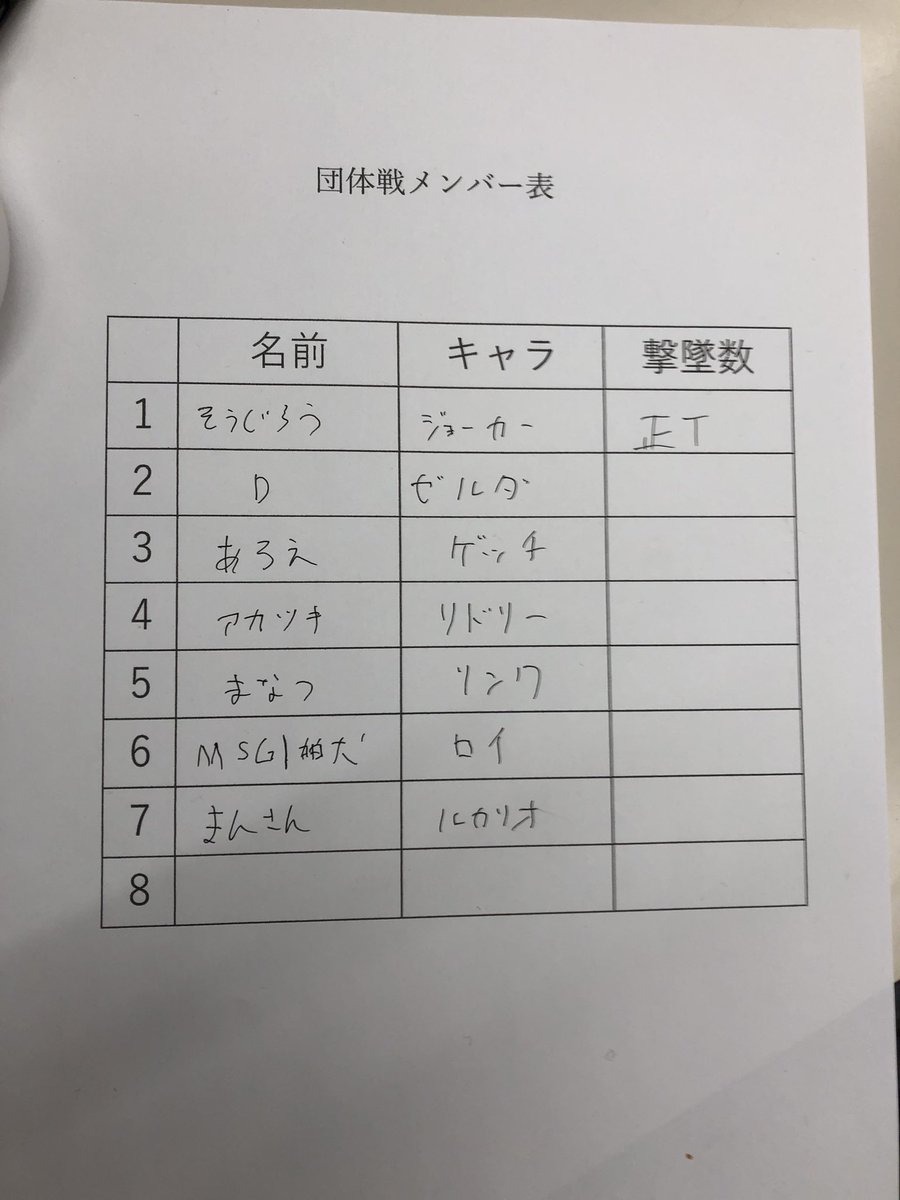 団体戦メンバー表
名前 キャラ 撃墜数
1 そうじろう ジョーカー 正T
2 D ゼルダ
3 あろえ ゲッチ
4 アカツキ リドリー
5 まなつ リンク
6 MSG|柏犬 ロイ
7 まんさん ルカリオ
8